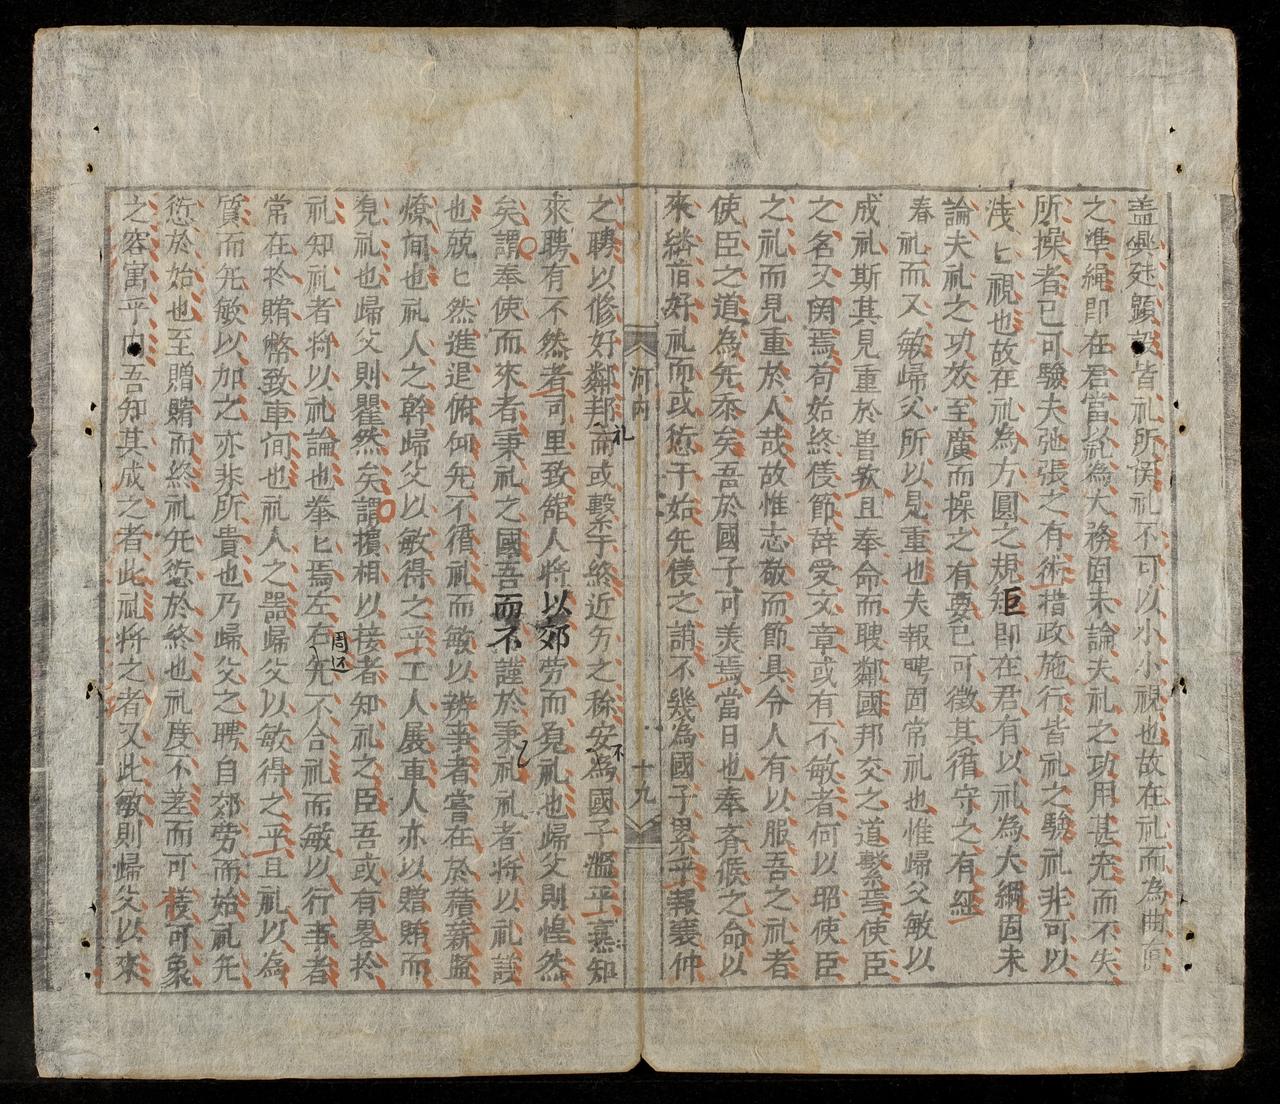 盖興廷顕設皆礼所関礼不可以小小視也故在礼而為曲直
之準繩即在君當以礼為大務固未論夫礼之功用甚充而不失
所操者已可驗夫弛張之有術措政施行皆礼之驗礼非可以
浅〻視也故在礼為方圓之規矩即在君有以礼為大綱固未
論夫礼之功效至廣而操之有要已可徵其循守之有経
春礼而又敏歸父所以見重也夫報聘固常礼也惟歸父敏以
成礼斯其見重於鲁欤且奉命而聘鄰國邦交之道繫焉使臣
之名又関焉苟始終儀節辞受文章或有不敏者何以昭使臣
之礼而見重於人哉故惟志敬而節具令人有以服吾之礼者
使臣之道為旡忝矣吾於國子可美焉當日也奉斉侯之命以
來繕旧好礼而或愆于始旡儀之誚不幾為國子累乎報襄仲
河内
十九
之聘以修好鄰邦礼而或繫于終近方之称安不為國子濫乎慕知
來聘有不然者司里致舘人將以郊劳而覓礼也歸父則惶然
矣謂奉使而來者秉礼之國吾而不謹於秉礼礼者將以礼議
也兢〻然進退俯仰旡不循礼而敏以辨事者嘗在於積薪監
燎间也礼人之幹歸父以敏得之乎工人展車人亦以贈賄而
覓礼也歸父則瞿然矣謂擯相以接者知礼之臣吾或有畧於
礼知礼者將以礼論也拳〻焉左右周还旡不合礼而敏以行事者
常在於賭幣致車间也礼人之器歸父以敏得之乎且礼以為
質而旡敏以加之亦非所貴也乃歸父之聘自郊劳而始礼旡
愆於始也至贈賄而終礼旡愆於終也礼度不差而可儀可象
之容寓乎中吾知其成之者此礼將之者又此敏則歸父以來